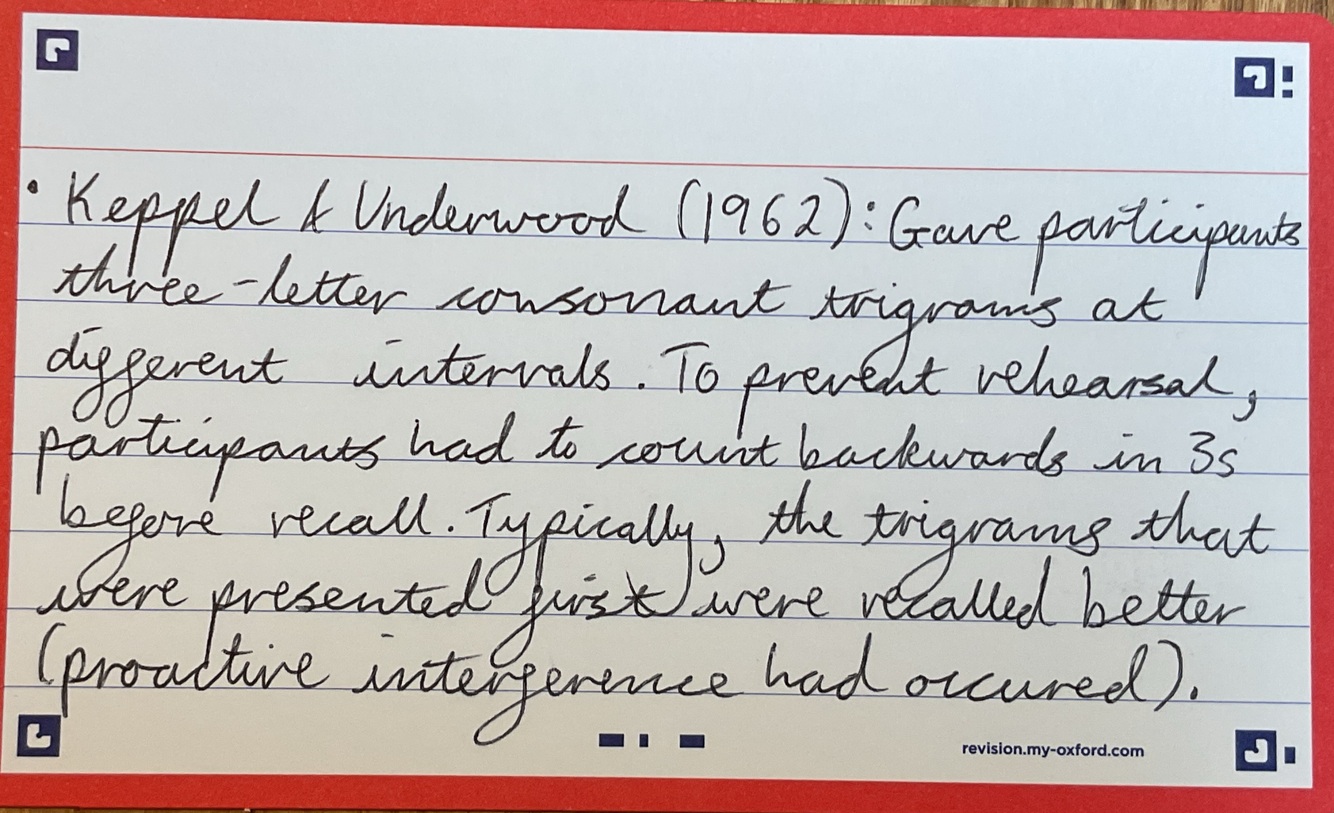 • Keppel & Underwood (1962): Gave participants
three-letter consonant trigrams at
different intervals. To prevent rehearsal,
participants had to count backwards in 3s
before recall. Typically, the trigrams that
were presented first were recalled better
(proactive interference had occured).
revision.my-oxford.com